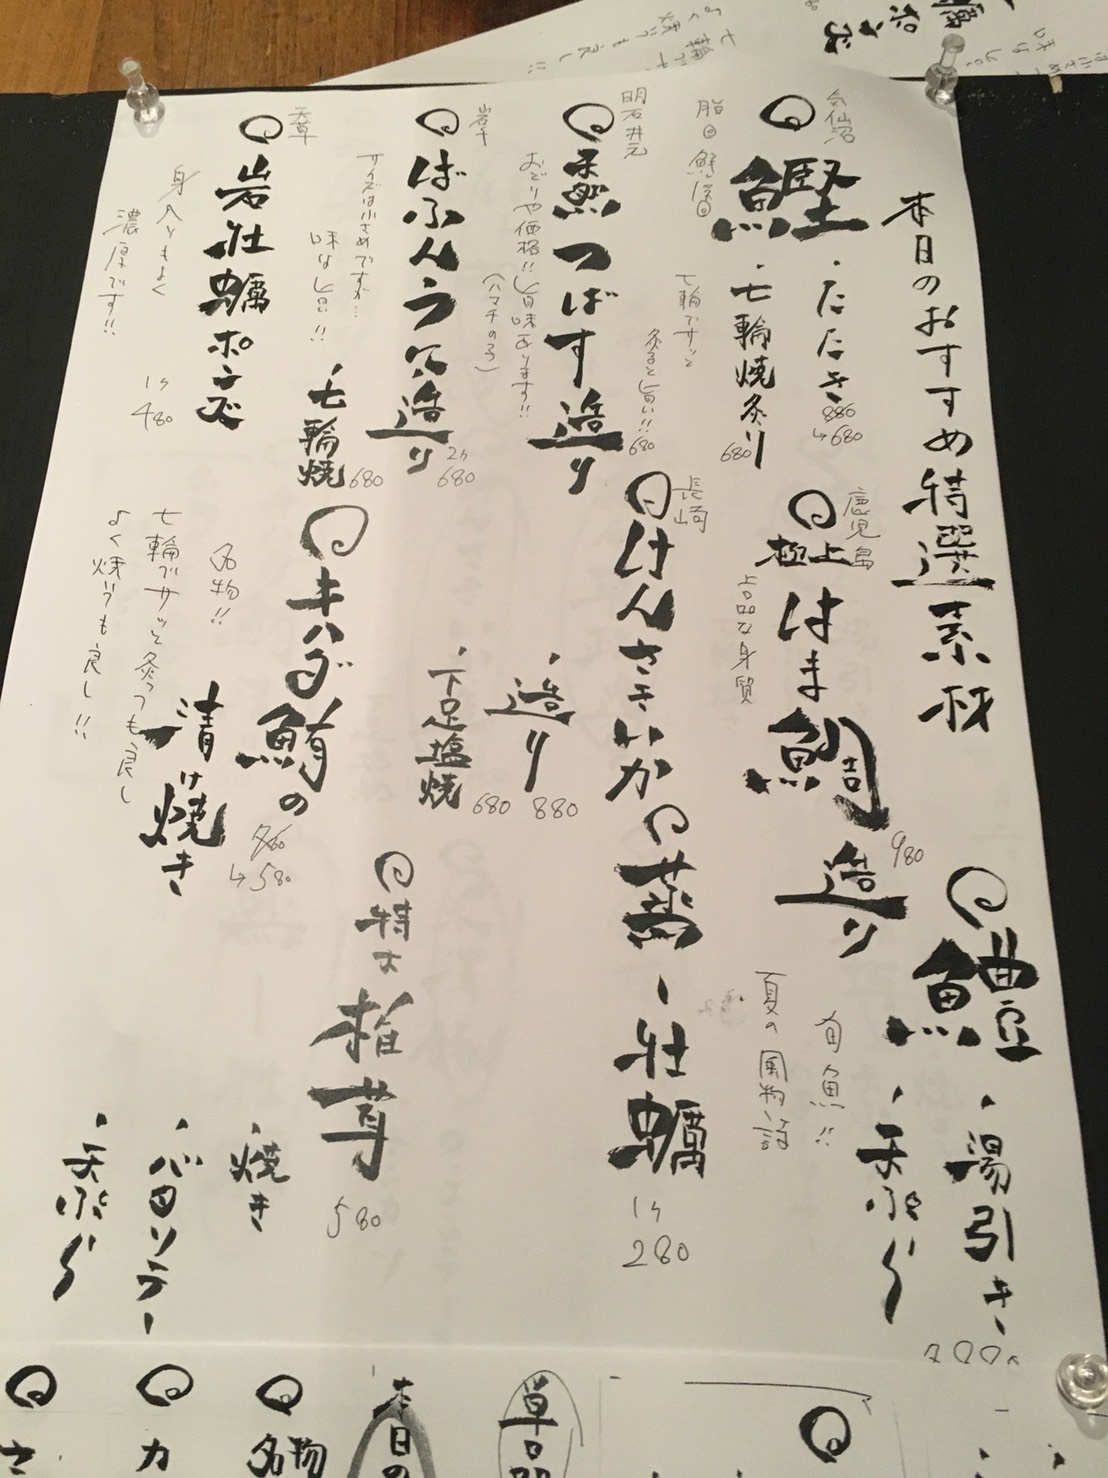 本日のおすすめ特選素材
気仙沼
鰹
・たたき
880
→680
・七輪焼炙り
680
七輪でサッと
炙ると旨い!!
鹿児島
極上はま鯛造り
980
上品な身質
鱧
・湯引き
・天ぷら
旬魚!!
夏の風物詩
明石
天然つばす造り
680
おどりや価格!!旨味あります!!
(ハマチの子)
長崎
けんさきいか
・造り
880
・下足塩焼
680
蒸し牡蠣
1ケ
280
ばふんうに造り
2ケ
680
サイズは小さめですが…
味はし旨!!
・七輪焼
680
キハダ鮪の
漬け焼き
780
→580
名物!!
七輪でサッと炙っても良し
よく焼いても良し!!
特大椎茸
580
・焼き
・バタソテー
・天ぷら
天草
岩牡蠣ポン酢
1ケ
480
身入りもよく
濃厚です!!
本日の
名物
カ
さ